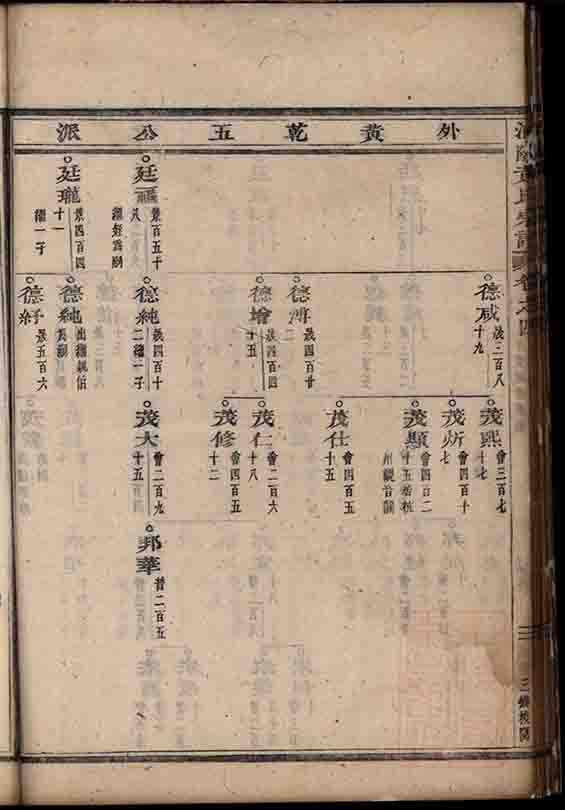 外黄乾五公派
德咸
發三百八
十九
茂熙
會三百七
十七
茂炘
會四百十
七
茂顯
會四百二
茂仕
會四百五
十五
德溥
發四百廿
二
德增
發四百四
十五
茂仁
會二百六
十八
茂修
會四百五
十二
廷福
景百五十
八
德純
發四百十
二繼一子
茂大
會二百九
十五
邦華
普二百五
廷瓏
景四百四
十一
繼一子
德純
德紓
發五百六